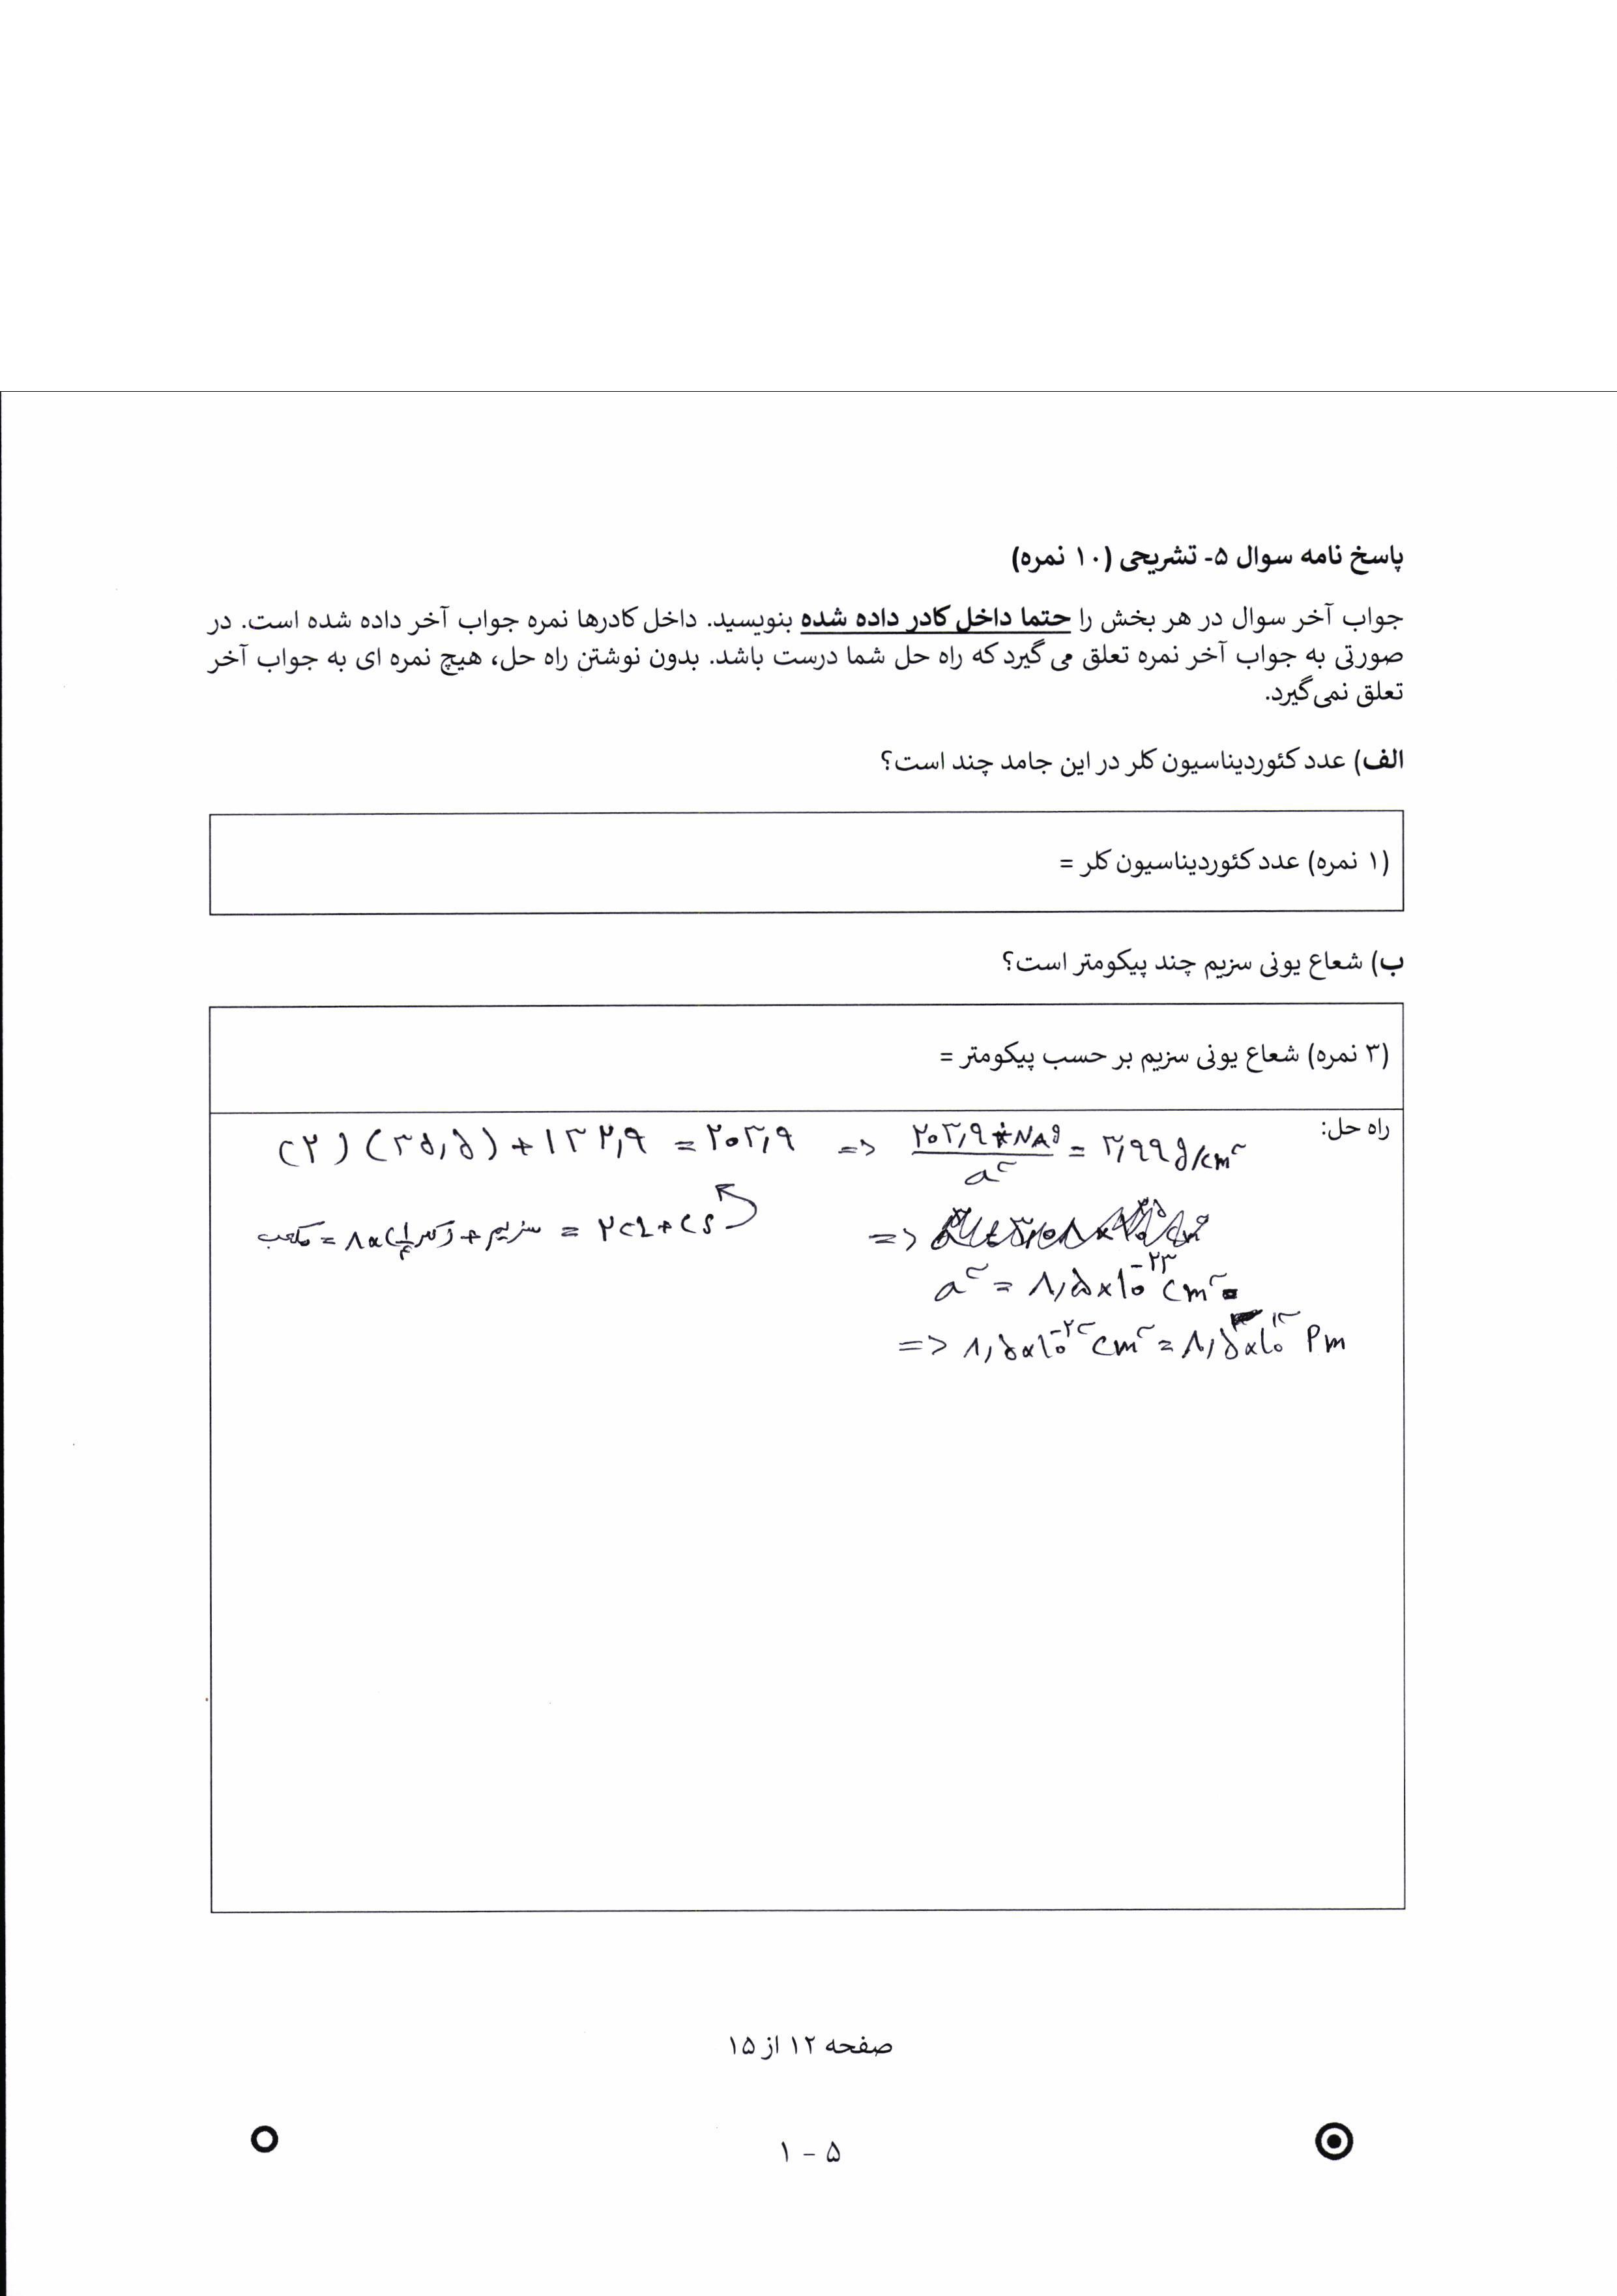 پاسخ نامه سوال ۵- تشریحی (۱۰ نمره)
جواب آخر سوال در هر بخش را حتما داخل کادر داده شده بنویسید. داخل کادرها نمره جواب آخر داده شده است. در
صورتی به جواب آخر نمره تعلق می گیرد که راه حل شما درست باشد. بدون نوشتن راه حل، هیچ نمره ای به جواب آخر
تعلق نمی‌گیرد.
الف) عدد کئوردیناسیون کلر در این جامد چند است؟
(۱ نمره) عدد کئوردیناسیون کلر =
ب) شعاع یونی سزیم چند پیکومتر است؟
(۳ نمره) شعاع یونی سزیم بر حسب پیکومتر =
راه حل:
(۲) (۳۵٫۵) + ۱۳۲٫۹ = ۲۰۳٫۹ => ۲۰۳٫۹ * NA g / a³ = ۳٫۹۹ g/cm³
مکعب = ۸ × (۱/۴ کلر) + سزیم = ۲CL + CS
a³ = ۸٫۵ × ۱۰^-۲۳ cm³
=> ۸٫۵ × ۱۰^-۲۳ cm³ = ۸٫۵ × ۱۰^۱۳ Pm
صفحه ۱۲ از ۱۵
۵ - ۱